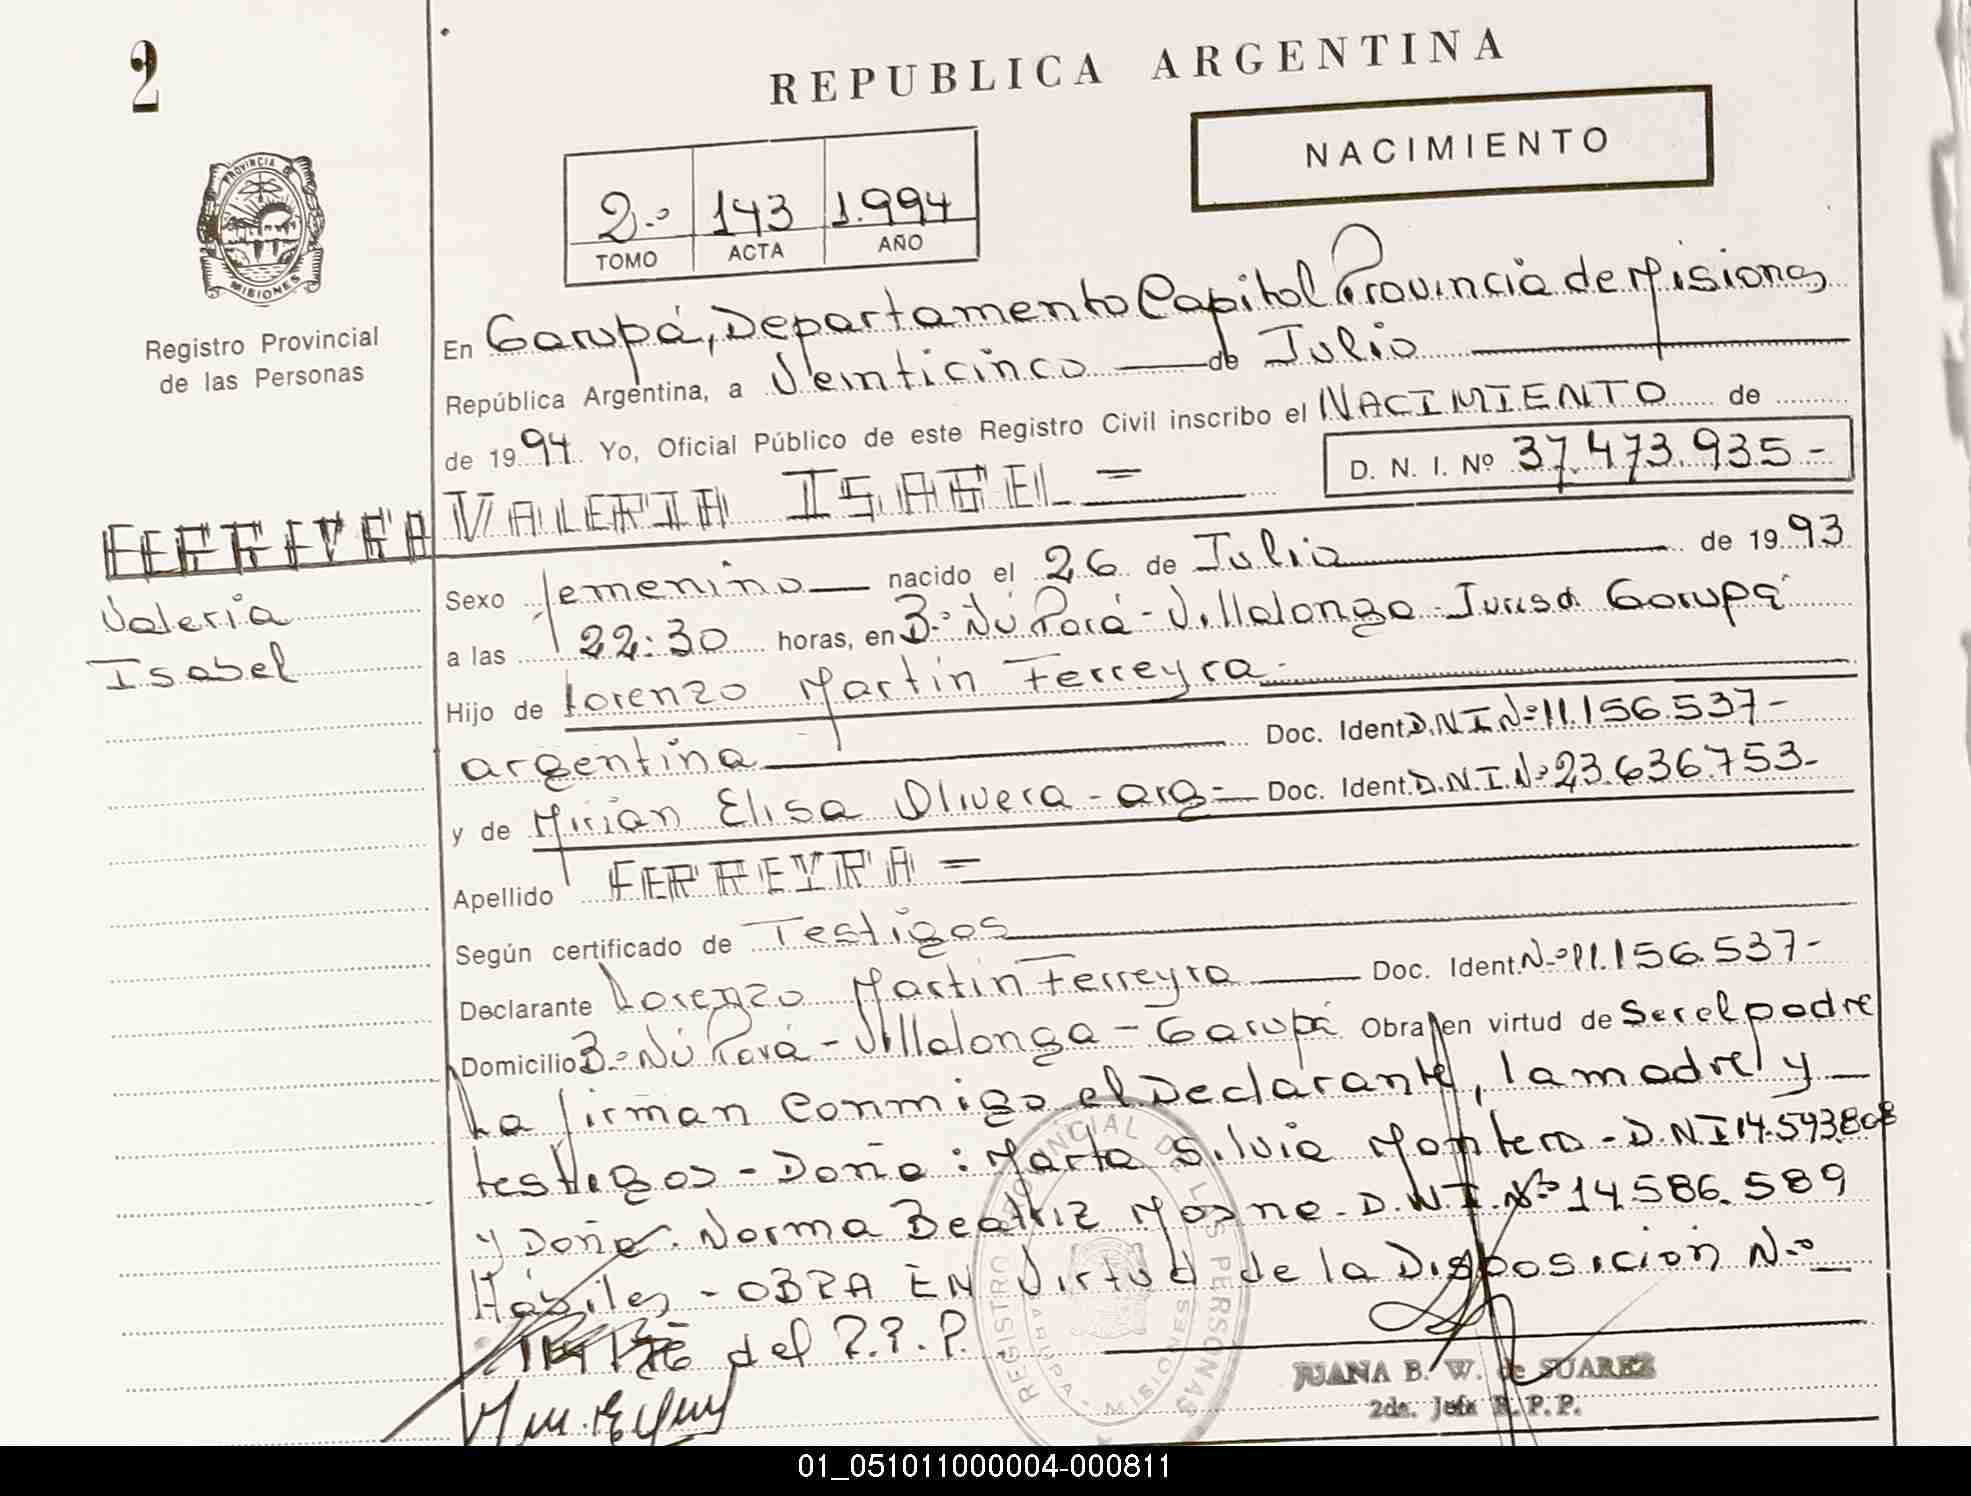 2
REPUBLICA ARGENTINA
NACIMIENTO
2.º 143 1.994
TOMO ACTA AÑO
PROVINCIA DE
MISIONES
Registro Provincial
de las Personas
En Garupá, Departamento Capital Provincia de Misiones
República Argentina, a Veinticinco de Julio
de 1994 Yo, Oficial Público de este Registro Civil inscribo el NACIMIENTO de
D. N. I. Nº 37.473.935-
FERREYRA VALERIA ISABEL =
Valeria
Isabel
Sexo femenino nacido el 26 de Julio de 1993
a las 22:30 horas, en B.º Ñú Porá - Villalonga - Jurisd. Garupá
Hijo de Lorenzo Martin Ferreyra
argentina Doc. Ident. D.N.I.Nº 11.156.537-
y de Mirian Elisa Olivera - arg = Doc. Ident. D.N.I.Nº 23.636.753-
Apellido FERREYRA =
Según certificado de Testigos
Declarante Lorenzo Martin Ferreyra Doc. Ident. Nº 11.156.537-
Domicilio B.º Ñú Porá - Villalonga - Garupá Obra en virtud de Ser el padre
La firman conmigo el Declarante, la madre y
testigos - Doña: Marta Silvia Montero - D.N.I 14.593.808
y Doña. Norma Beatriz D.N.I. Nº 14.586.589
Hábiles - OBRA EN Virtud de la Disposición N.º
del R.P.P.
REGISTRO PROVINCIAL DE LAS PERSONAS
GARUPA - MISIONES
JUANA B. W. de SUAREZ
2da. Jefa R. P. P.
01_051011000004-000811